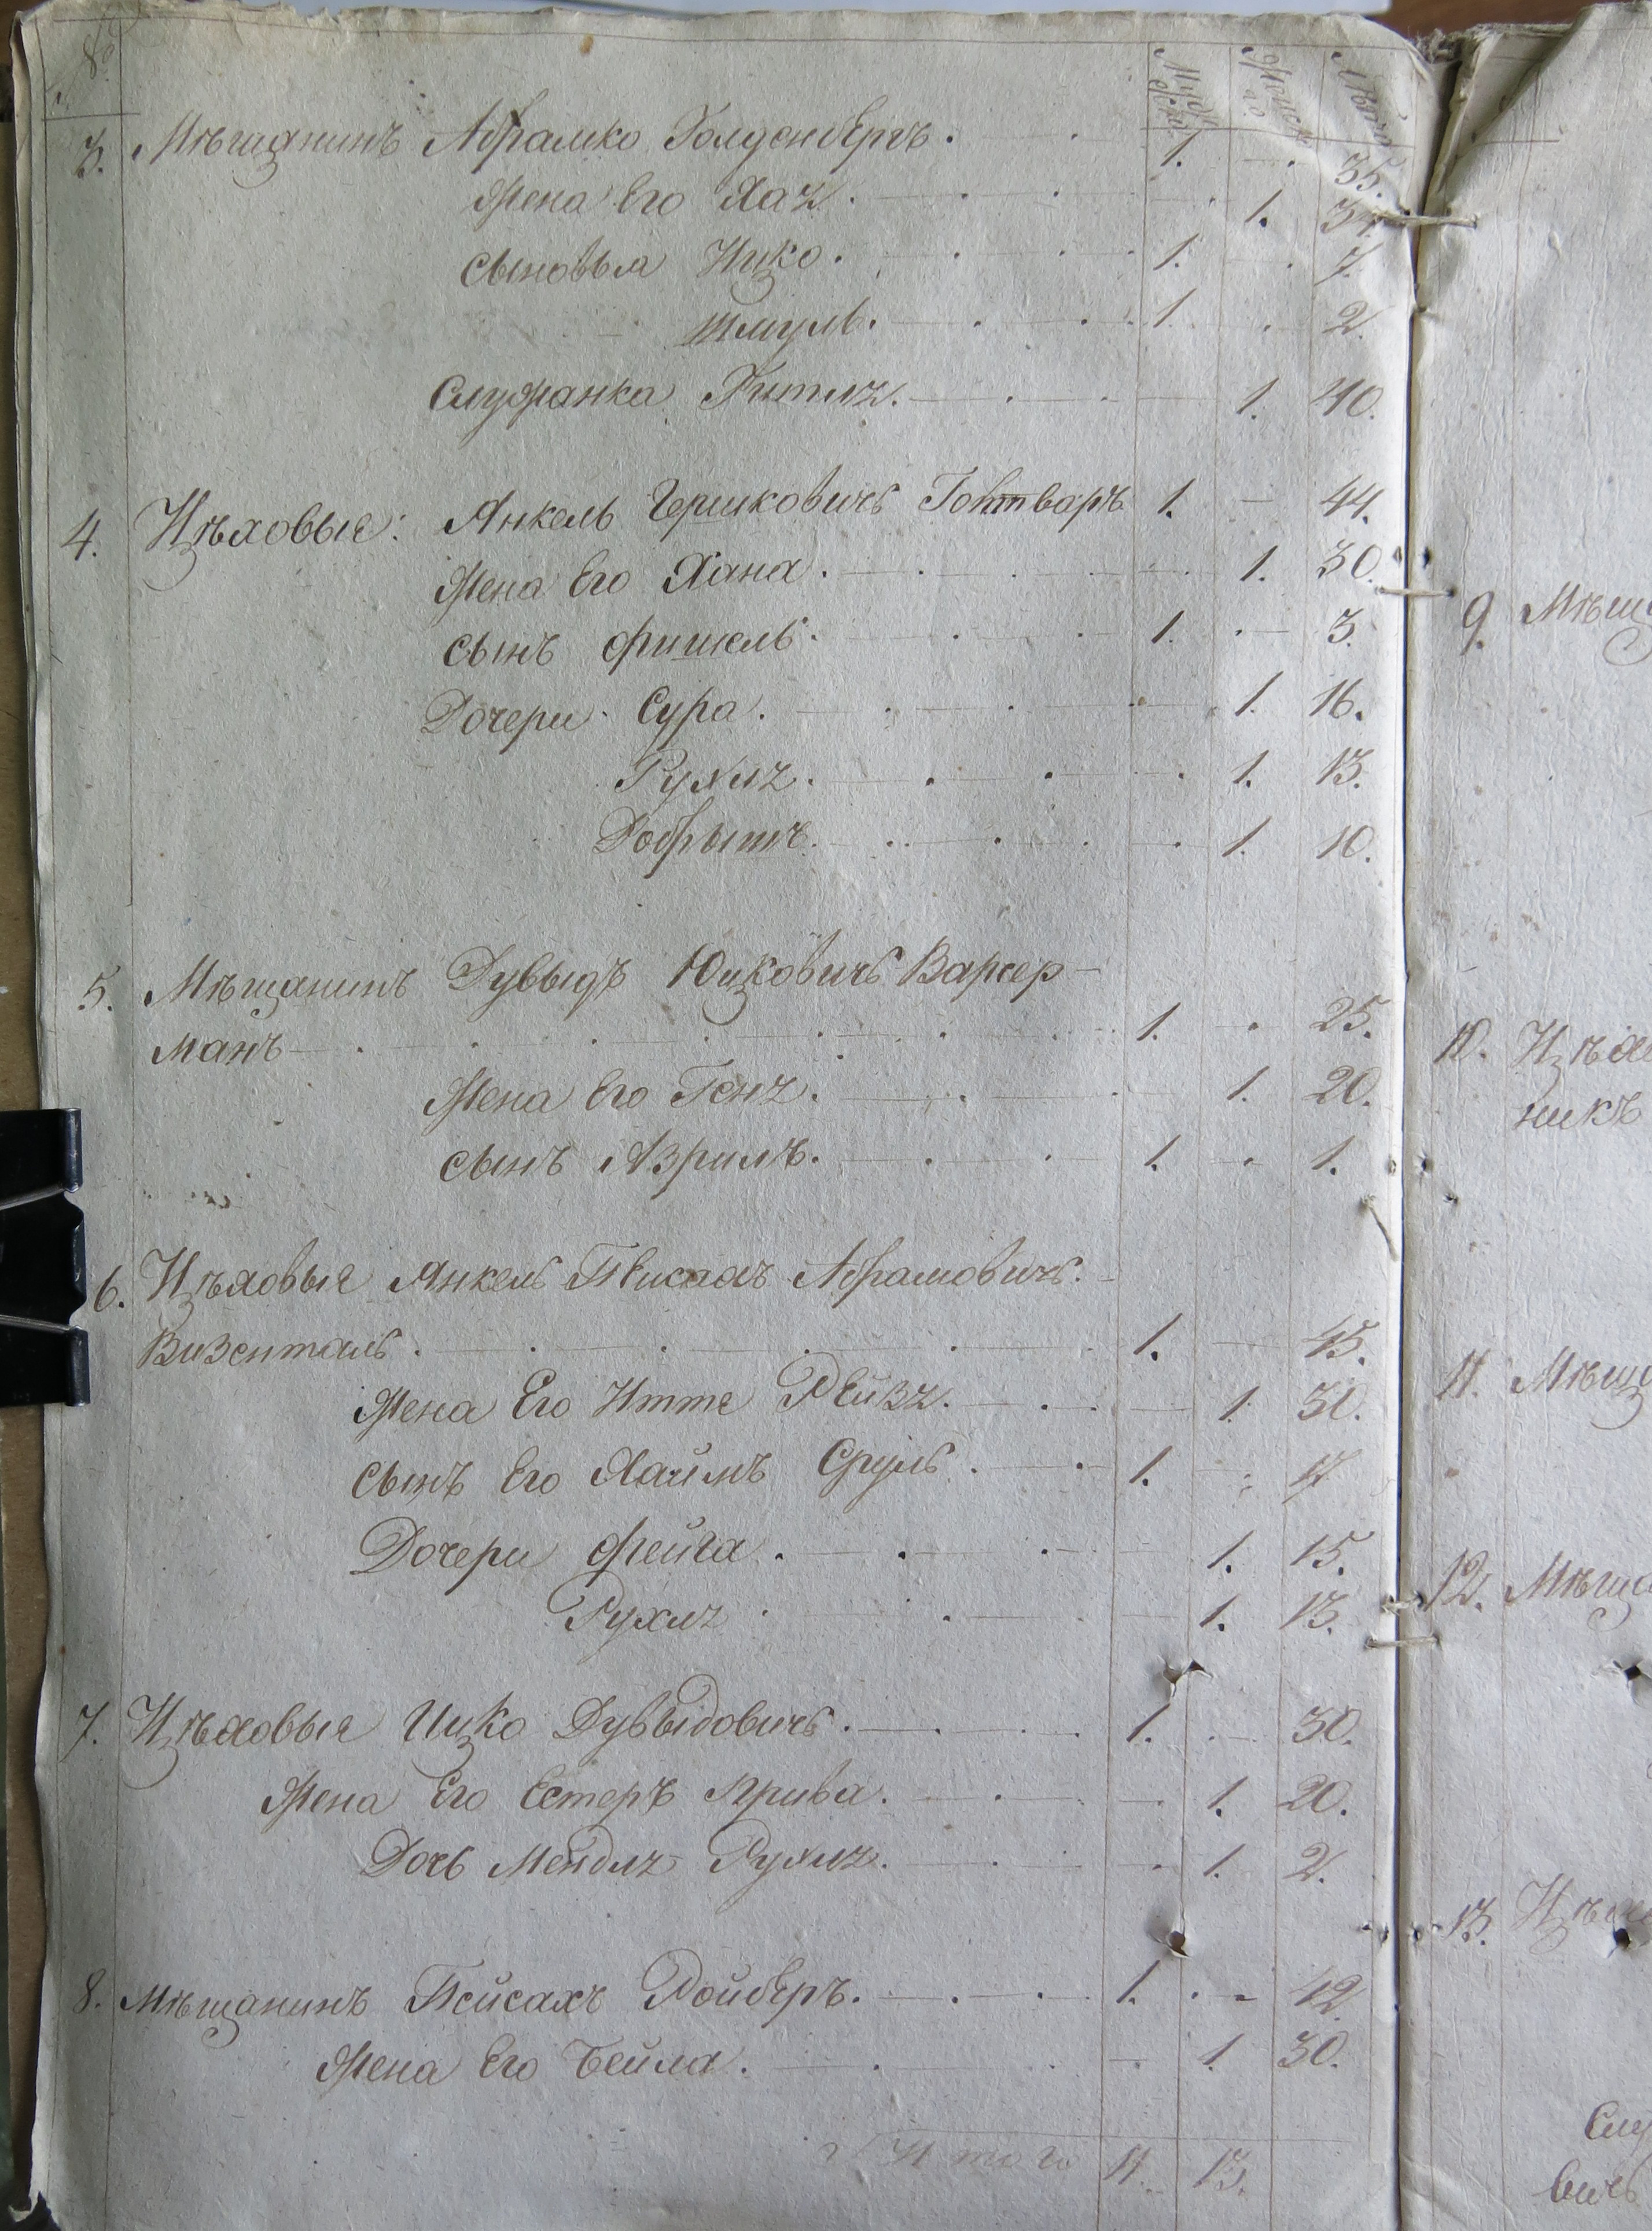 №
Мужеска
Женска
Лѣта
3. Мѣщанинъ Абрамко Голденбергъ. 1. 35.
Жена Его Хая. 1. 34.
сыновья Ицко. 1. 7.
Шмуль. 1. 2.
Служанка Гитля. 1. 40.
4. Цѣховые: Янкель Гершковичъ 1. 44.
Жена Его Хана. 1. 30.
сынъ Фишель. 1. 3.
Дочери Сура. 1. 16.
Рухля. 1. 13.
Добрышъ. 1. 10.
5. Мѣщанинъ Дувыдъ Юзковичъ Вассер-
манъ 1. 25.
Жена Его Геня. 1. 20.
сынъ Азриль. 1. 1.
6. Цѣховые Янкель Пейсахъ Абрамовичъ
Визенталь. 1. 45.
Жена Его Итте Рейзя. 1. 30.
сынъ Его Хаимъ Сруль. 1. 17
Дочери Фейга. 1. 15.
Рухля 1. 13.
7. Цѣховые Ицко Дувыдовичъ. 1. 30.
Жена Его Естеръ Крива. 1. 20.
Дочь Мендля Рухля. 1. 2.
8. Мѣщанинъ Пейсахъ Ройберъ. 1. 42.
Жена Его Бейла. 1. 30.
Итого 11. 13.
9. Мѣщ
10. Цѣхо
никъ
11. Мѣщ
12. Мѣща
13. Цѣхо
Слу
вичъ